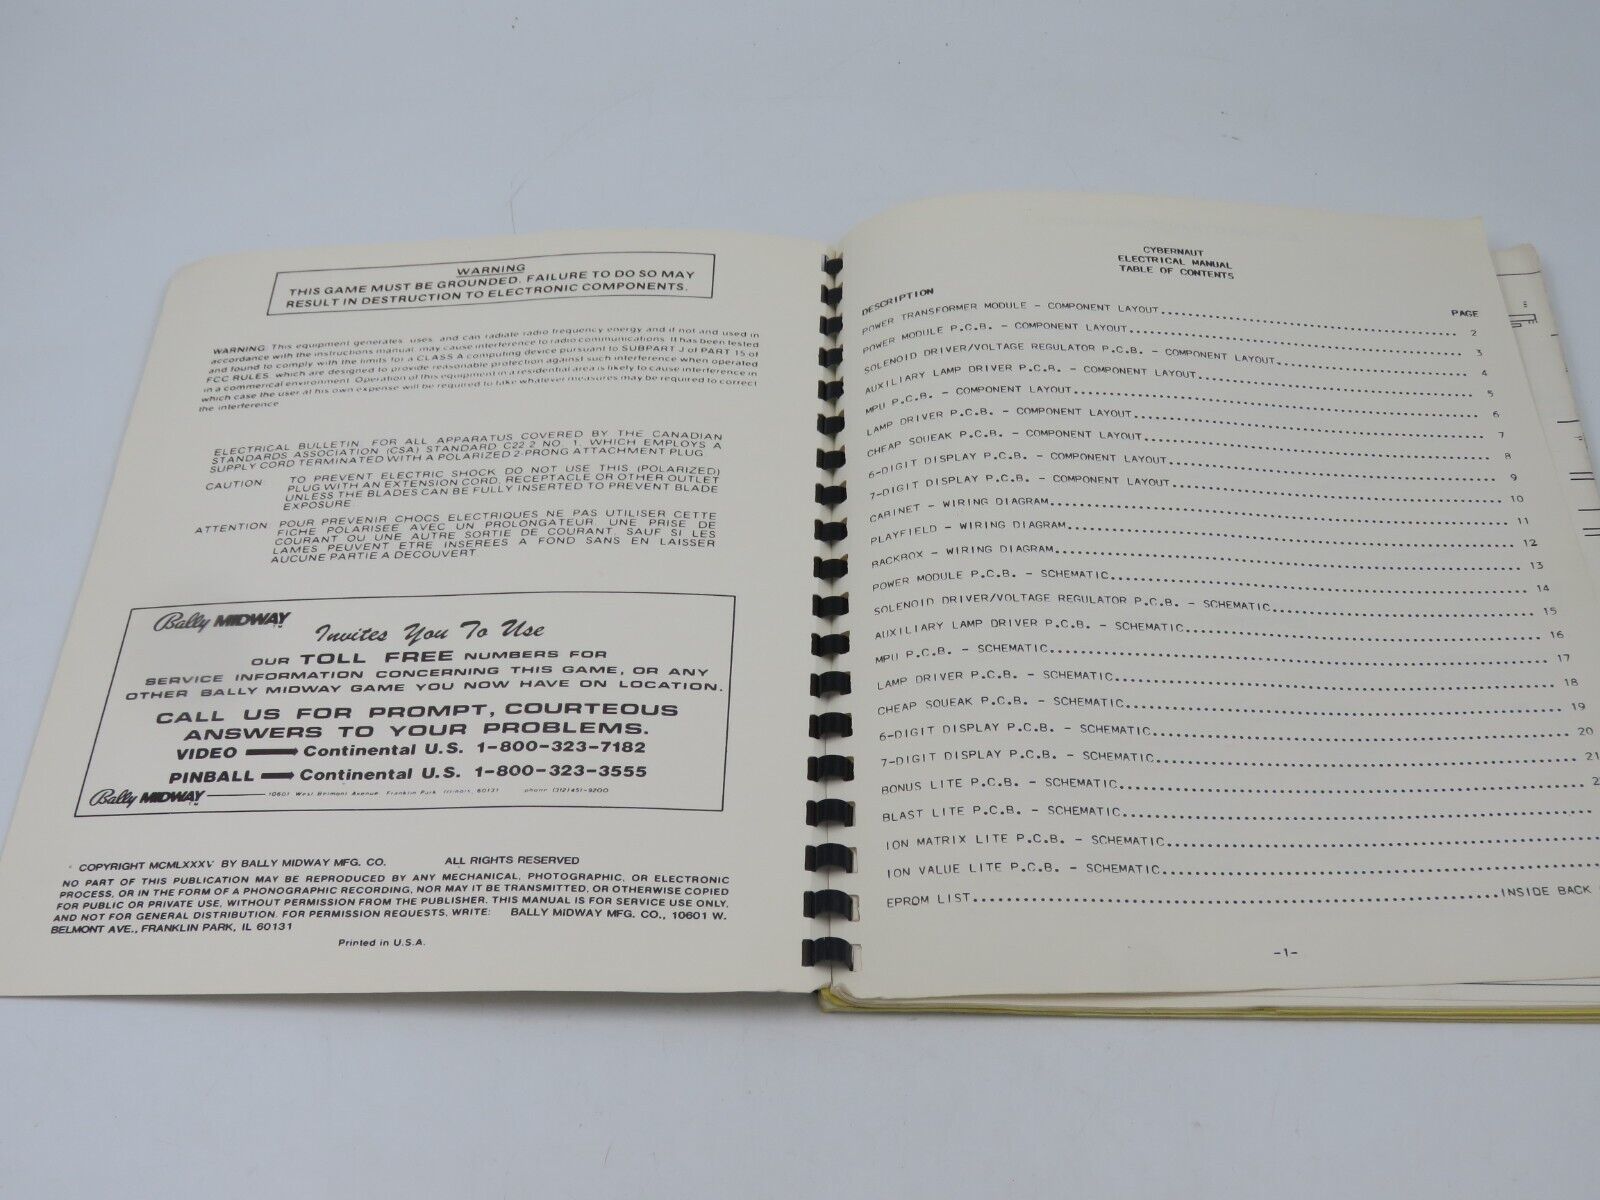 WARNING
THIS GAME MUST BE GROUNDED. FAILURE TO DO SO MAY
RESULT IN DESTRUCTION TO ELECTRONIC COMPONENTS.
WARNING: This equipment generates, uses, and can radiate radio frequency energy and if not and used in
accordance with the instructions manual, may cause interference to radio communications. It has been tested
and found to comply with the limits for a CLASS A computing device pursuant to SUBPART J of PART 15 of
FCC RULES, which are designed to provide reasonable protection against such interference when operated
in a commerical environment. Operation of this equipment in a residential area is likely to cause interference in
which case the user at his own expense will be required to take whatever measures may be required to correct
the interference.
ELECTRICAL BULLETIN FOR ALL APPARATUS COVERED BY THE CANADIAN
STANDARDS ASSOCIATION (CSA) STANDARD C22.2 NO. 1, WHICH EMPLOYS A
SUPPLY CORD TERMINATED WITH A POLARIZED 2-PRONG ATTACHMENT PLUG.
CAUTION: TO PREVENT ELECTRIC SHOCK DO NOT USE THIS (POLARIZED)
PLUG WITH AN EXTENSION CORD, RECEPTACLE OR OTHER OUTLET
UNLESS THE BLADES CAN BE FULLY INSERTED TO PREVENT BLADE
EXPOSURE.
ATTENTION: POUR PREVENIR CHOCS ELECTRIQUES NE PAS UTILISER CETTE
FICHE POLARISEE AVEC UN PROLONGATEUR, UNE PRISE DE
COURANT OU UNE AUTRE SORTIE DE COURANT, SAUF SI LES
LAMES PEUVENT ETRE INSEREES A FOND SANS EN LAISSER
AUCUNE PARTIE A DECOUVERT.
Bally MIDWAY
Invites You To Use
OUR TOLL FREE NUMBERS FOR
SERVICE INFORMATION CONCERNING THIS GAME, OR ANY
OTHER BALLY MIDWAY GAME YOU NOW HAVE ON LOCATION.
CALL US FOR PROMPT, COURTEOUS
ANSWERS TO YOUR PROBLEMS.
VIDEO Continental U.S. 1-800-323-7182
PINBALL Continental U.S. 1-800-323-3555
Bally MIDWAY 10601 West Belmont Avenue, Franklin Park, Illinois, 60131 phone (312)451-9200
COPYRIGHT MCMLXXXV BY BALLY MIDWAY MFG. CO. ALL RIGHTS RESERVED
NO PART OF THIS PUBLICATION MAY BE REPRODUCED BY ANY MECHANICAL, PHOTOGRAPHIC, OR ELECTRONIC
PROCESS, OR IN THE FORM OF A PHONOGRAPHIC RECORDING, NOR MAY IT BE TRANSMITTED, OR OTHERWISE COPIED
FOR PUBLIC OR PRIVATE USE, WITHOUT PERMISSION FROM THE PUBLISHER. THIS MANUAL IS FOR SERVICE USE ONLY,
AND NOT FOR GENERAL DISTRIBUTION. FOR PERMISSION REQUESTS, WRITE: BALLY MIDWAY MFG. CO., 10601 W.
BELMONT AVE., FRANKLIN PARK, IL 60131
Printed in U.S.A.
CYBERNAUT
ELECTRICAL MANUAL
TABLE OF CONTENTS
DESCRIPTION PAGE
POWER TRANSFORMER MODULE - COMPONENT LAYOUT 2
POWER MODULE P.C.B. - COMPONENT LAYOUT 3
SOLENOID DRIVER/VOLTAGE REGULATOR P.C.B. - COMPONENT LAYOUT 4
AUXILIARY LAMP DRIVER P.C.B. - COMPONENT LAYOUT 5
MPU P.C.B. - COMPONENT LAYOUT 6
LAMP DRIVER P.C.B. - COMPONENT LAYOUT 7
CHEAP SQUEAK P.C.B. - COMPONENT LAYOUT 8
6-DIGIT DISPLAY P.C.B. - COMPONENT LAYOUT 9
7-DIGIT DISPLAY P.C.B. - COMPONENT LAYOUT 10
CABINET - WIRING DIAGRAM 11
PLAYFIELD - WIRING DIAGRAM 12
BACKBOX - WIRING DIAGRAM 13
POWER MODULE P.C.B. - SCHEMATIC 14
SOLENOID DRIVER/VOLTAGE REGULATOR P.C.B. - SCHEMATIC 15
AUXILIARY LAMP DRIVER P.C.B. - SCHEMATIC 16
MPU P.C.B. - SCHEMATIC 17
LAMP DRIVER P.C.B. - SCHEMATIC 18
CHEAP SQUEAK P.C.B. - SCHEMATIC 19
6-DIGIT DISPLAY P.C.B. - SCHEMATIC 20
7-DIGIT DISPLAY P.C.B. - SCHEMATIC 21
BONUS LITE P.C.B. - SCHEMATIC 2
BLAST LITE P.C.B. - SCHEMATIC
ION MATRIX LITE P.C.B. - SCHEMATIC
ION VALUE LITE P.C.B. - SCHEMATIC
EPROM LIST INSIDE BACK
-1-